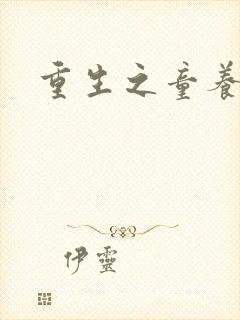 重生之童養
伊靈